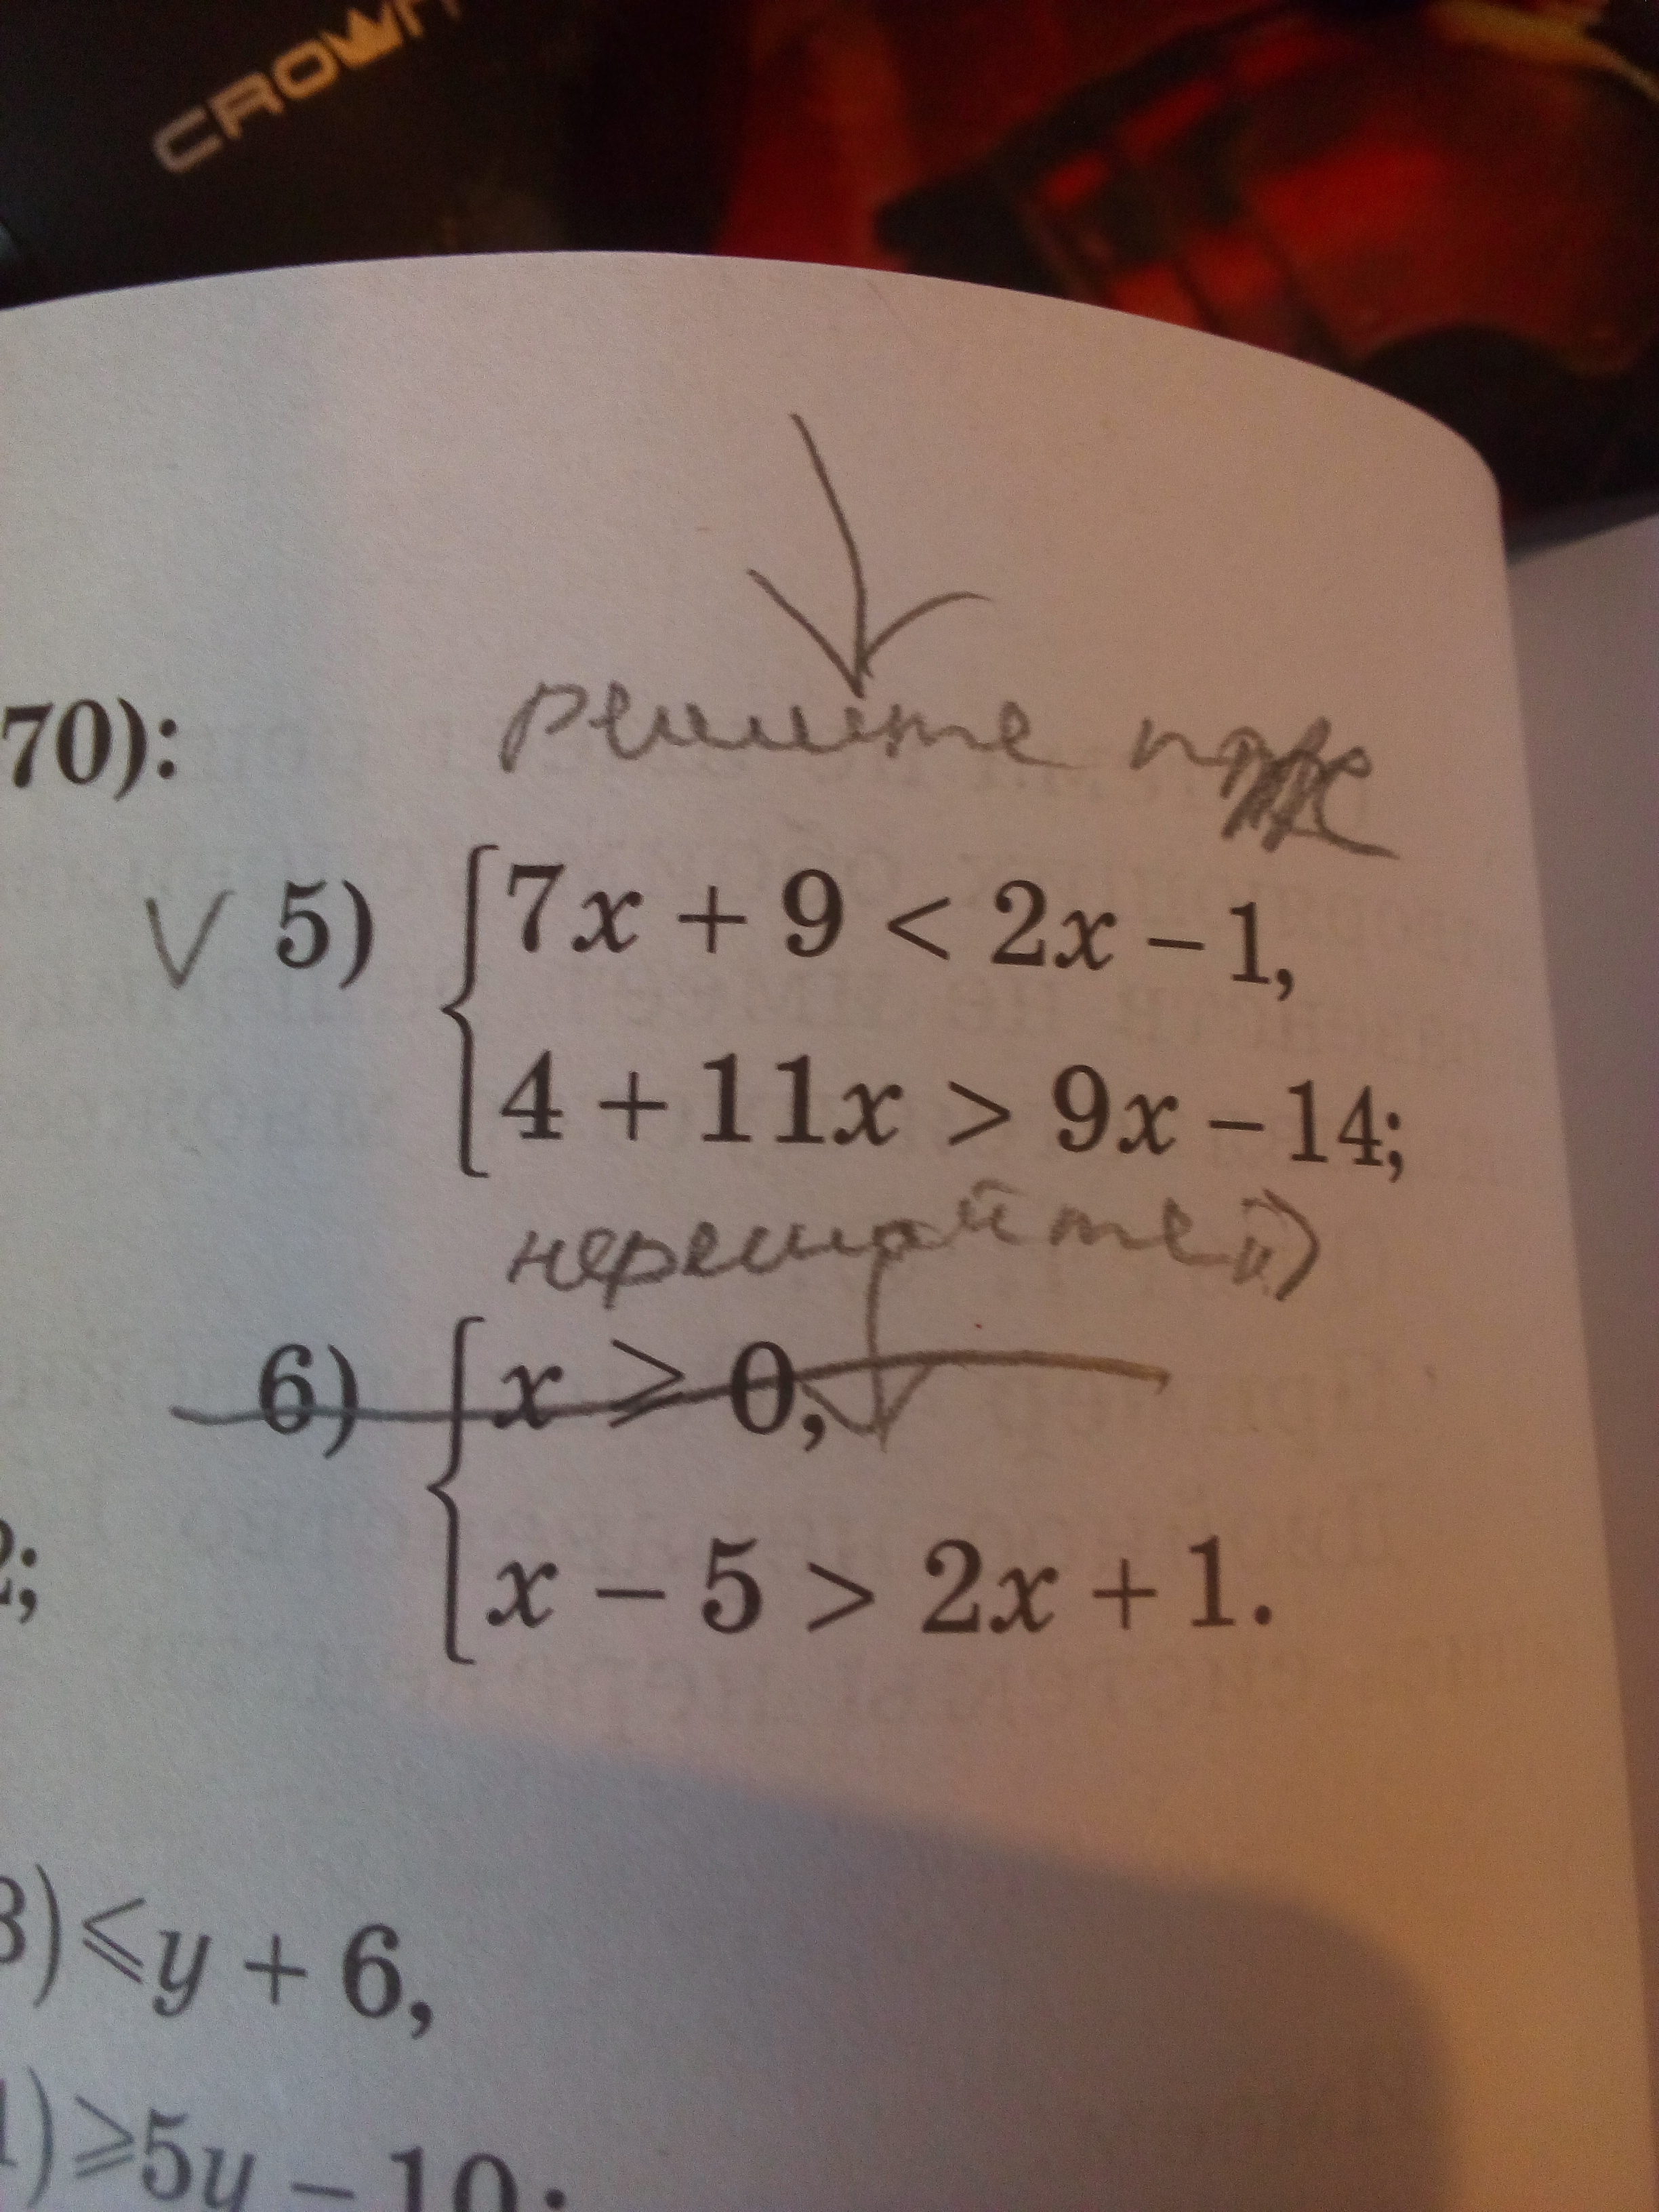 CROWN
решите пж
70):
V 5) { 7x + 9 < 2x − 1,
4 + 11x > 9x − 14;
нерешайте))
6) { x ⩾ 0,
2;
x − 5 > 2x + 1.
3) ⩽ y + 6,
1) ⩾ 5y − 10;